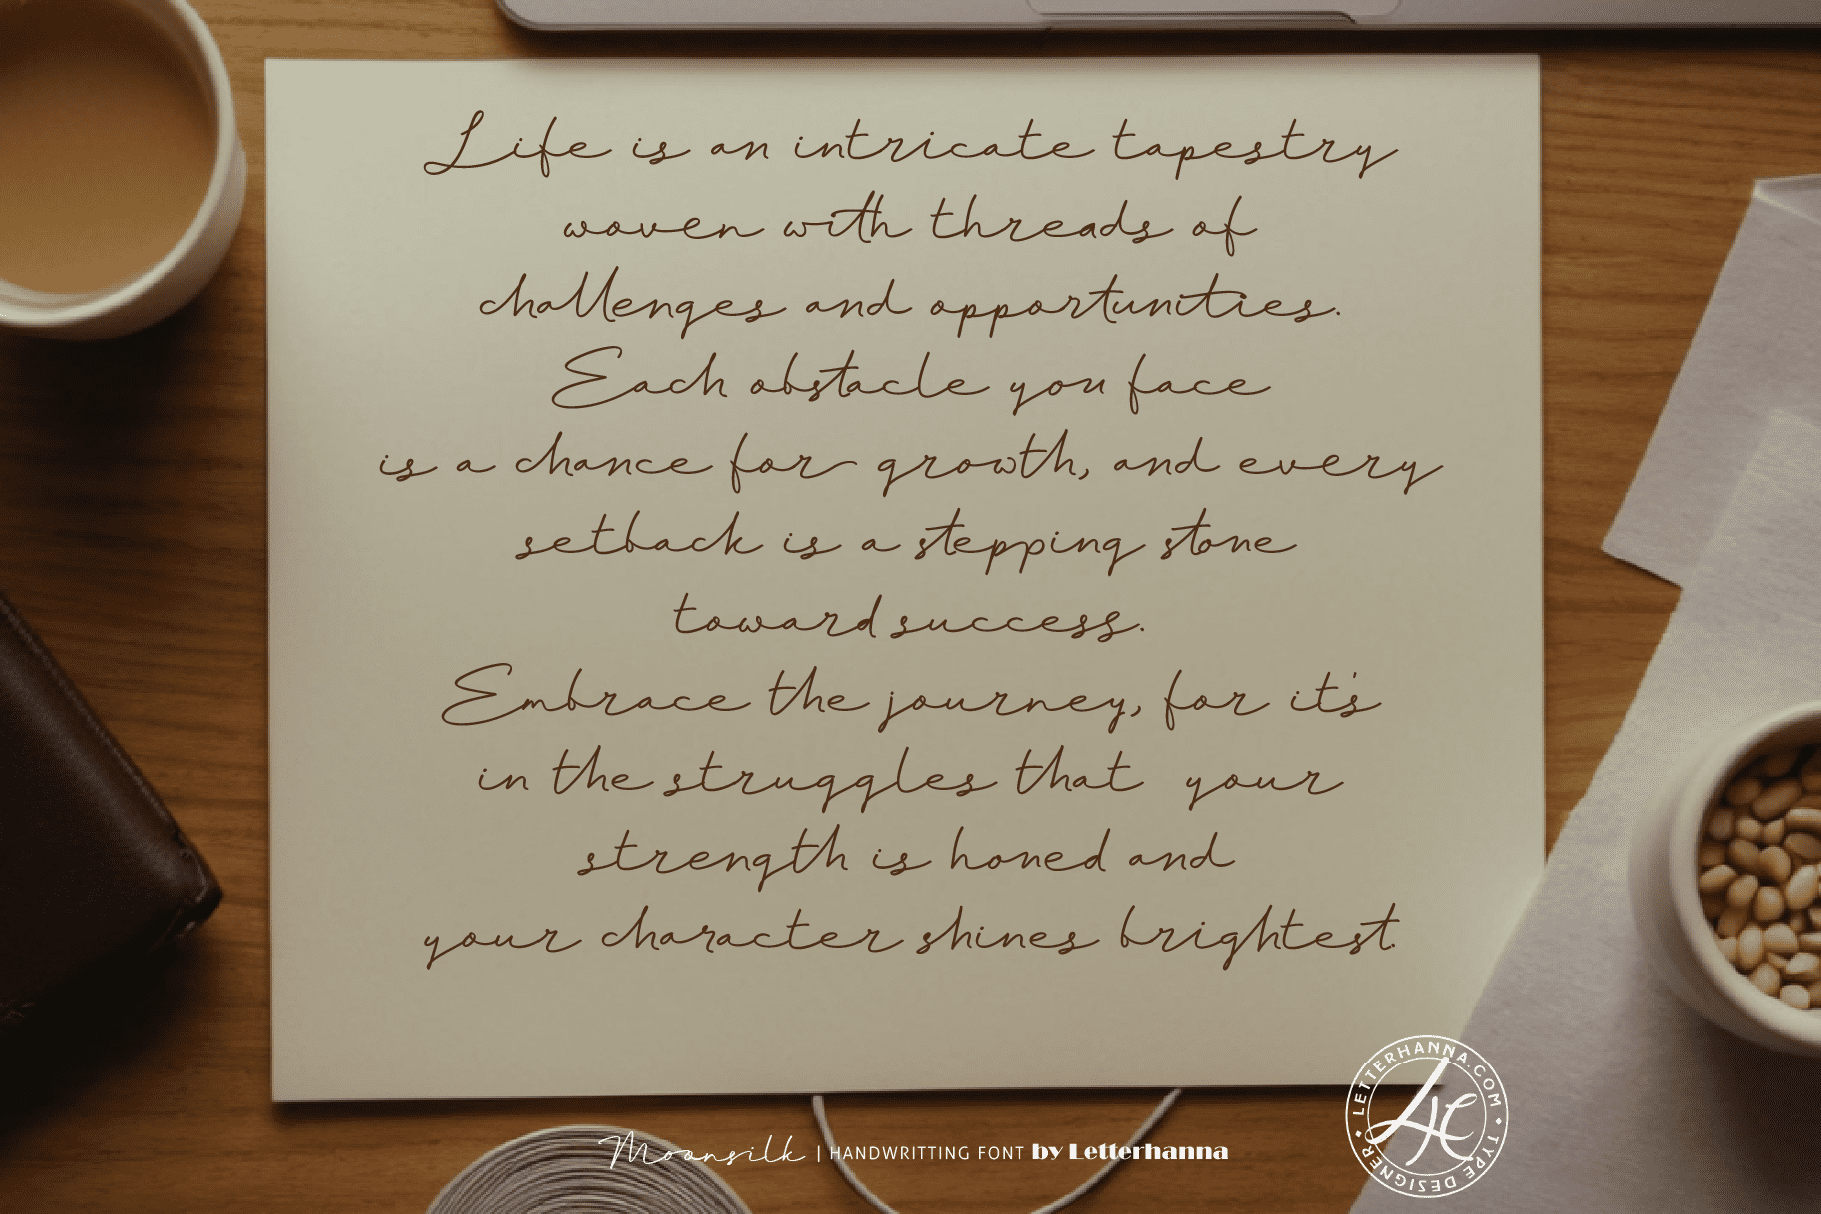 Life is an intricate tapestry
woven with threads of
challenges and opportunities.
Each obstacle you face
is a chance for growth, and every
setback is a stepping stone
toward success.
Embrace the journey, for it's
in the struggles that your
strength is honed and
your character shines brightest.
Moonsilk | HANDWRITTING FONT by Letterhanna
LETTERHANNA.COM • TYPE DESIGNER •
LH